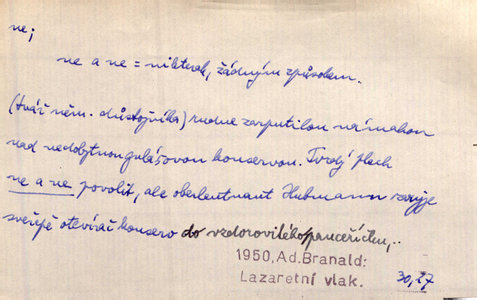 ne;
ne a ne = nikterak, žádným způsobem.
(tvář něm. důstojníka) rudne zarputilou námahou
nad nedobytnou gulášovou konservou. Tvrdý plech
ne a ne povolit, ale oberleutnant Hubmann zaryje
svěřepě otevírač konserv do vzdorovitého pancéříčku,..
1950, Ad. Branald:
Lazaretní vlak.
30,27